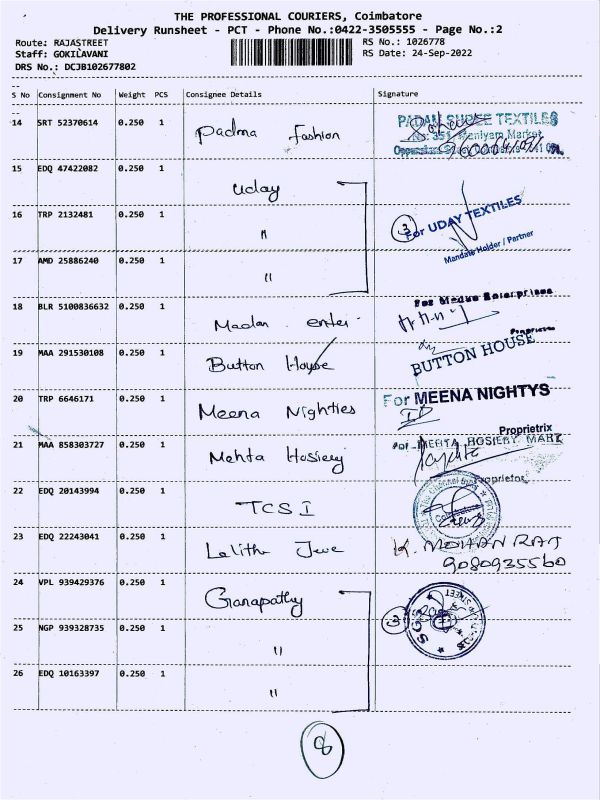 THE PROFESSIONAL COURIERS, Coimbatore
Delivery Runsheet - PCT - Phone No.:0422-3505555 - Page No.:2
Route: RAJASTREET
Staff: GOKILAVANI
DRS No.: DCJB102677802
RS No.: 1026778
RS Date: 24-Sep-2022
S No Consignment No Weight PCS Consignee Details Signature
14 SRT 52370614 0.250 1 Padma Fashion
PADAM SHREE TEXTILES
15 EDQ 47422082 0.250 1 Uday
16 TRP 2132481 0.250 1 "
3 For UDAY TEXTILES
Mandate Holder / Partner
17 AMD 25886240 0.250 1 "
18 BLR 5100836632 0.250 1 Madan enter
Proprietor
19 MAA 291530108 0.250 1 Button House
BUTTON HOUSE
20 TRP 6646171 0.250 1 Meena Nighties
For MEENA NIGHTYS
Proprietrix
21 MAA 858303727 0.250 1 Mehta Hosiery
For MEHTA HOSIERY MART
Proprietor
22 EDQ 20143994 0.250 1 TCS I
23 EDQ 22243041 0.250 1 Lalitha Jwe
K. MOHAN RAJ
9080935560
24 VPL 939429376 0.250 1 Ganapathy
3
25 NGP 939328735 0.250 1 "
26 EDQ 10163397 0.250 1 "
8